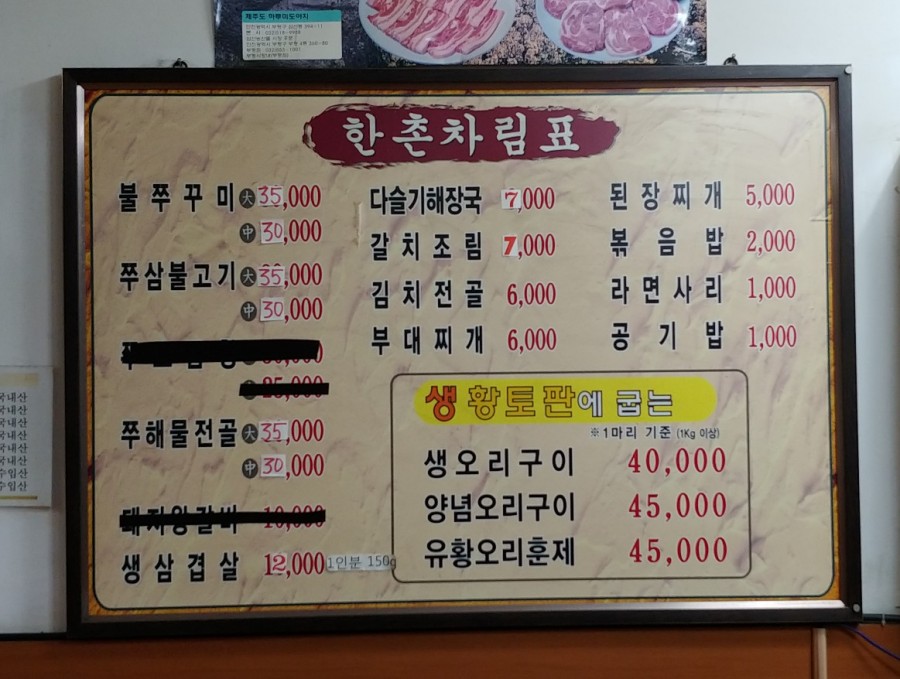 제주도
한촌차림표
불쭈꾸미 大 35,000
中 30,000
쭈삼불고기 大 35,000
中 30,000
쭈해물전골 大 35,000
中 30,000
생삼겹살 12,000 1인분 150g
다슬기해장국 7,000
갈치조림 7,000
김치전골 6,000
부대찌개 6,000
된장찌개 5,000
볶음밥 2,000
라면사리 1,000
공기밥 1,000
생황토판에 굽는
※1마리 기준 (1Kg 이상)
생오리구이 40,000
양념오리구이 45,000
유황오리훈제 45,000
국내산
국내산
국내산
국내산
국내산
국내산
수입산
수입산